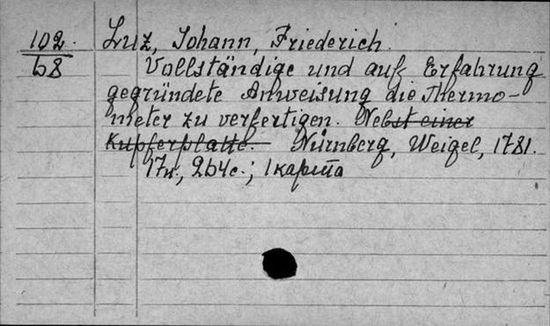 102. Luz, Johann, Friederich.
68 Vollständige und auf Erfahrung
gegründete Anweisung die Thermo-
meter zu verfertigen. Nebst einer
Kupferplatte. Nürnberg, Weigel, 1781.
17н, 264с.; 1